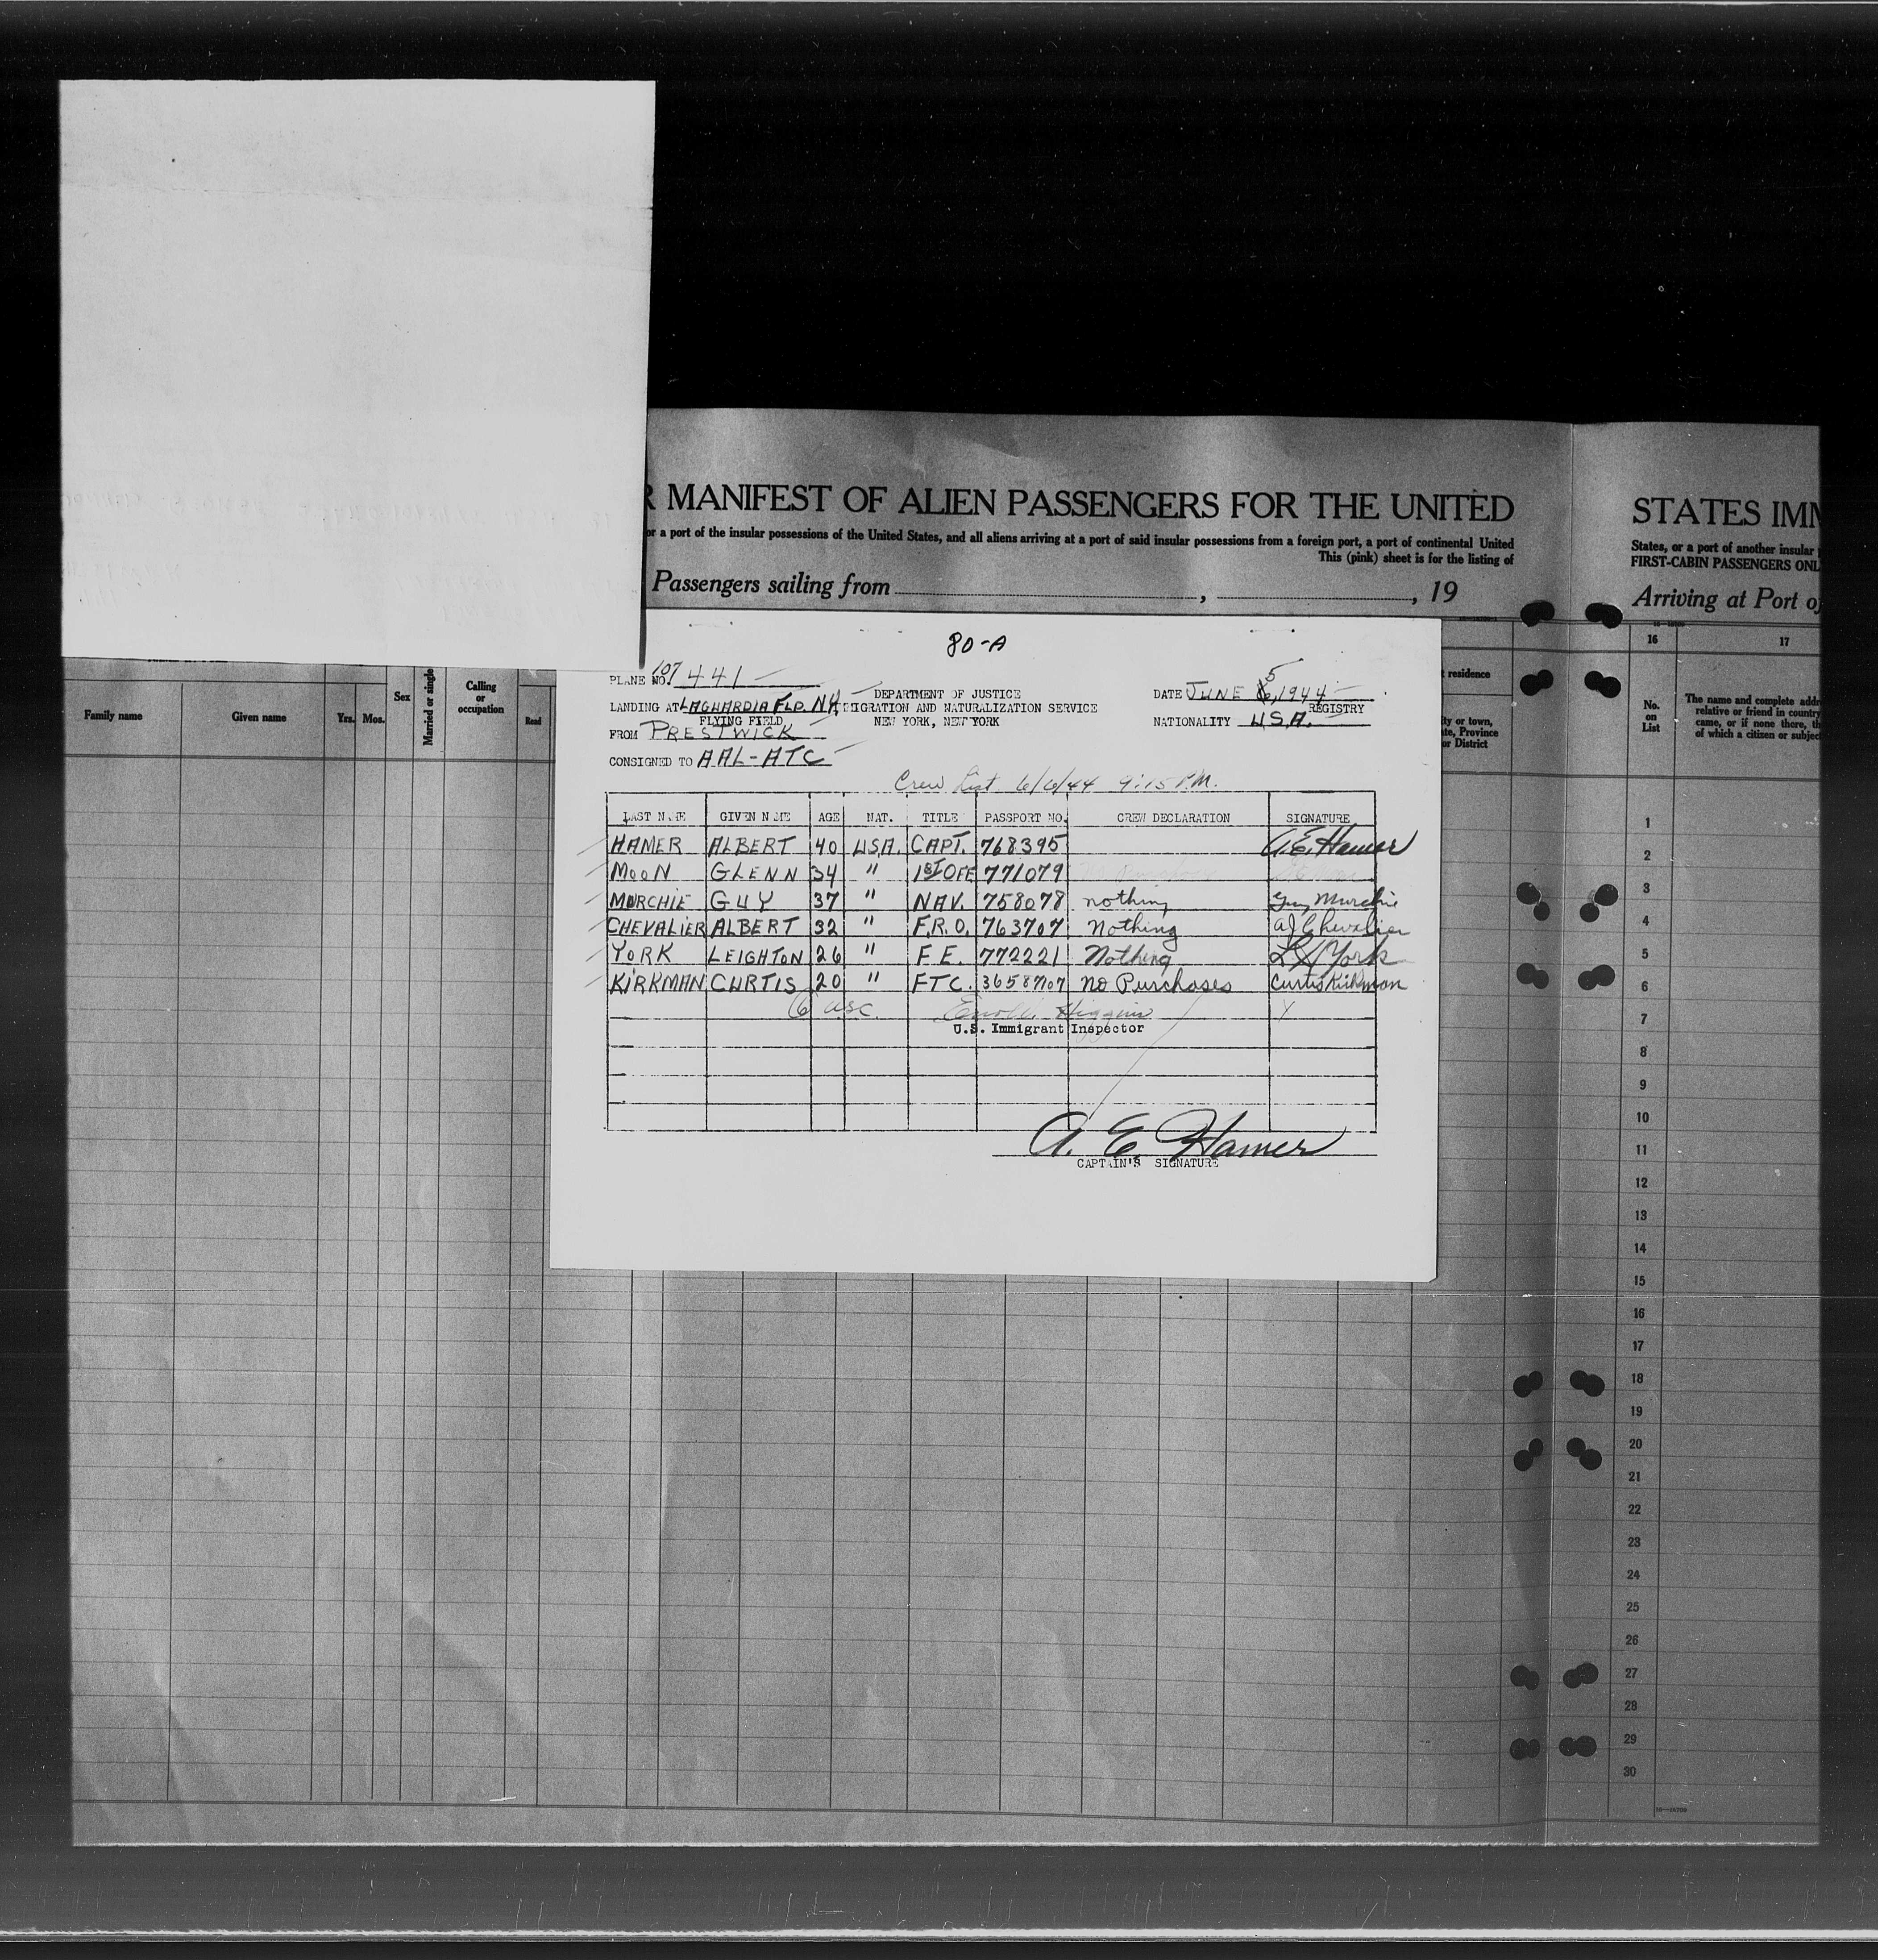 R MANIFEST OF ALIEN PASSENGERS FOR THE UNITED
or a port of the insular possessions of the United States, and all aliens arriving at a port of said insular possessions from a foreign port, a port of continental United
This (pink) sheet is for the listing of
Passengers sailing from , , 19
STATES IMM
States, or a port of another insular
FIRST-CABIN PASSENGERS ONL
Arriving at Port of
80-A
PLANE NO. 107441
5
DATE JUNE 6, 1944
DEPARTMENT OF JUSTICE
LANDING AT LAGUARDIA FLD. N.Y. IMMIGRATION AND NATURALIZATION SERVICE
REGISTRY
FLYING FIELD NEW YORK, NEW YORK
NATIONALITY U.S.A.
FROM PRESTWICK
CONSIGNED TO AAL-ATC
Crew List 6/6/44 9:15 P.M.
LAST NAME GIVEN NAME AGE NAT. TITLE PASSPORT NO. CREW DECLARATION SIGNATURE
HAMER ALBERT 40 U.S.A. CAPT. 768395 A.E. Hamer
MOON GLENN 34 " 1ST OFF 771079
MURCHIE GUY 37 " NAV. 758078 nothing Guy Murchie
CHEVALIER ALBERT 32 " F.R.O. 763707 Nothing AJ Chevalier
YORK LEIGHTON 26 " F.E. 772221 Nothing York
KIRKMAN CURTIS 20 " FTC. 36587707 no Purchases Curtis Kirkman
6 USC. Higgins
U.S. Immigrant Inspector
A. E. Hamer
CAPTAIN'S SIGNATURE
Family name
Given name
Yrs.
Mos.
Sex
Married or single
Calling
or
occupation
Read
t residence
ity or town,
ate, Province
or District
16
17
No.
on
List
The name and complete addr
relative or friend in country
came, or if none there, th
of which a citizen or subject
1
2
3
4
5
6
7
8
9
10
11
12
13
14
15
16
17
18
19
20
21
22
23
24
25
26
27
28
29
30